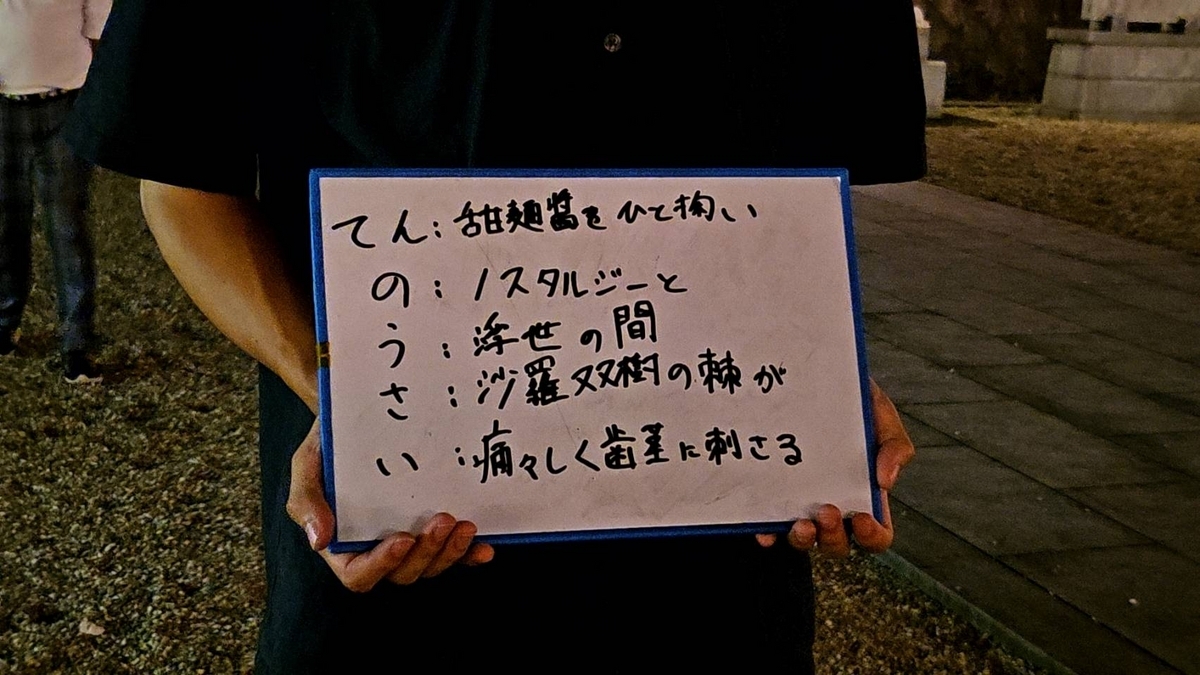 てん:甜麺醤をひと掬い
の:ノスタルジーと
う:浮世の間
さ:沙羅双樹の棘が
い:痛々しく歯茎に刺さる